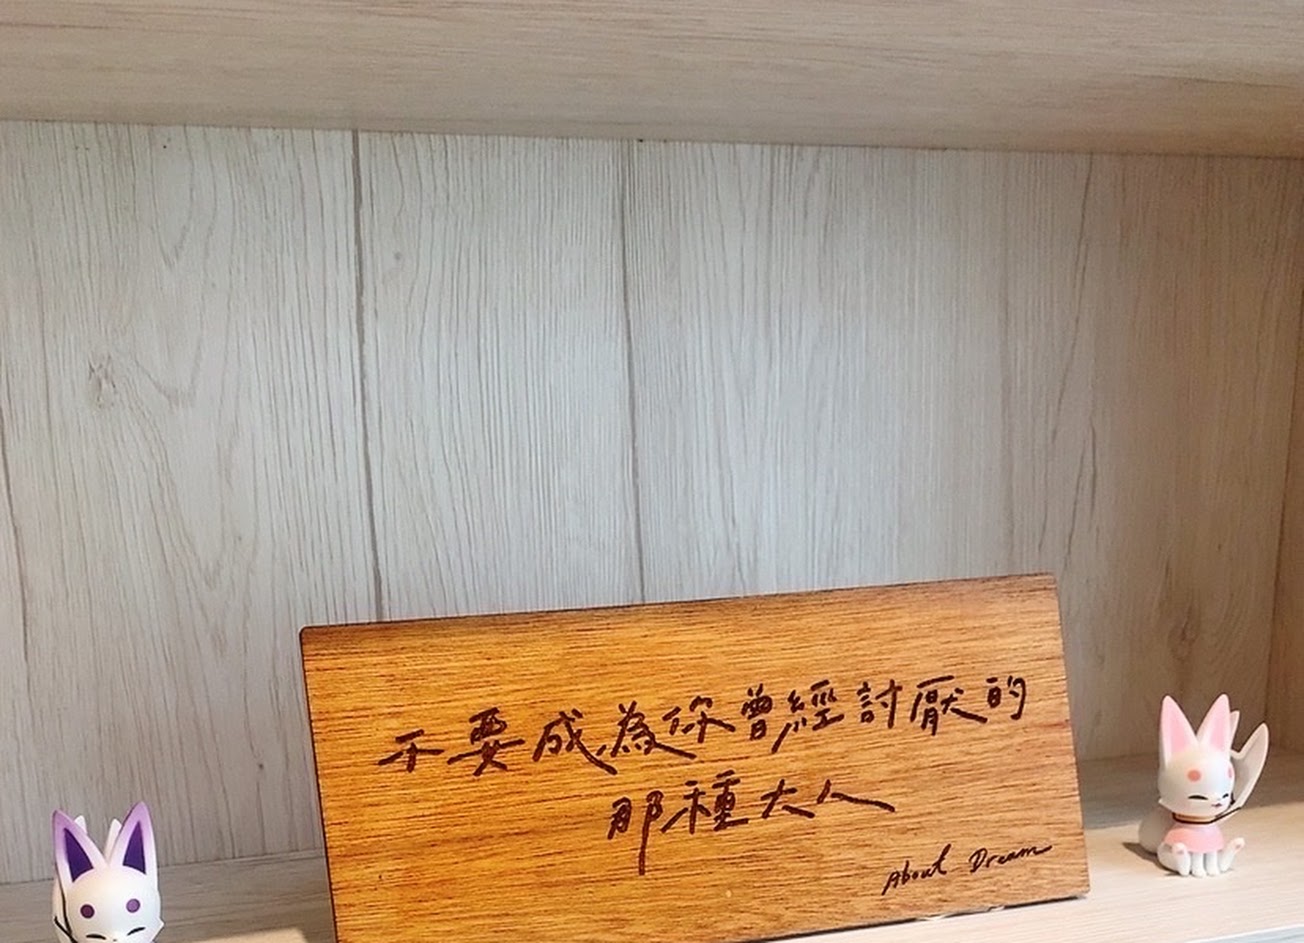 不要成為你曾經討厭的
那種大人
About Dream